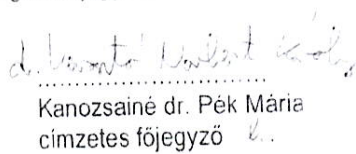 dr.
Kanozsainé dr. Pék Mária
címzetes főjegyző